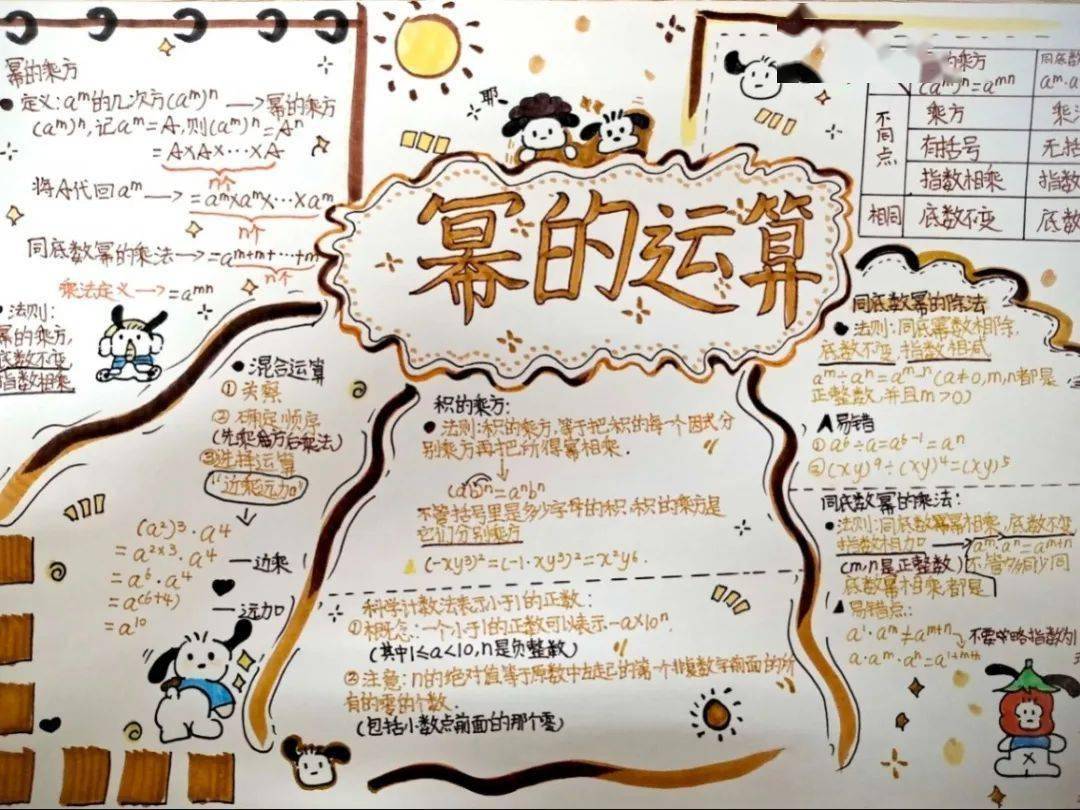 幂的乘方
● 定义:aᵐ的几次方(aᵐ)ⁿ→幂的乘方
(aᵐ)ⁿ,记aᵐ=A,则(aᵐ)ⁿ=Aⁿ
=A×A×…×A
n个
将A代回aᵐ→=aᵐ×aᵐ×…×aᵐ
n个
同底数幂的乘法→=aᵐ⁺ᵐ⁺…⁺ᵐ
n个
乘法定义→=aᵐⁿ
● 法则:
幂的乘方,
底数不变
指数相乘
● 混合运算
① 观察
② 确定顺序
(先乘方后乘法)
③选择运算
"边乘远加"
(a²)³·a⁴
=a²ˣ³·a⁴
=a⁶·a⁴ 一边乘
=a⁽⁶⁺⁴⁾
=a¹⁰ 一远加
耶~
幂的运算
积的乘方:
● 法则:积的乘方,等于把积的每一个因式分
别乘方再把所得幂相乘.
(ab)ⁿ=aⁿbⁿ
不管括号里是多少字母的积.积的乘方是
它们分别乘方
(-xy³)²=(-1·xy³)²=x²y⁶.
科学计数法表示小于1的正数:
①概念:一个小于1的正数可以表示-a×10ⁿ.
(其中1≤a<10,n是负整数)
② 注意:n的绝对值等于原数中左起的第一个非零数字前面的所
有的零的个数.
(包括小数点前面的那个零)
的乘方 同底数
(aᵐ)ⁿ=aᵐⁿ aᵐ·a
不同点 乘方 乘
有括号 无括
指数相乘 指数
相同 底数不变 底数
同底数幂的除法
● 法则:同底幂数相除,
底数不变,指数相减
aᵐ÷aⁿ=aᵐ⁻ⁿ(a≠0,m,n都是
正整数,并且m>0)
易错
①a⁶÷a=a⁶⁻¹=aⁿ
②(xy)⁹÷(xy)⁴=(xy)⁵
同底数幂的乘法:
● 法则:同底数幂相乘,底数不变,
指数相加→aᵐ·aⁿ=aᵐ⁺ⁿ
(m,n是正整数)不管多少同
底数幂相乘都是
易错点:
a¹·aᵐ≠aᵐ⁺ⁿ 不要忽略指数为1
a·aᵐ·aⁿ=a¹⁺ᵐ⁺ⁿ